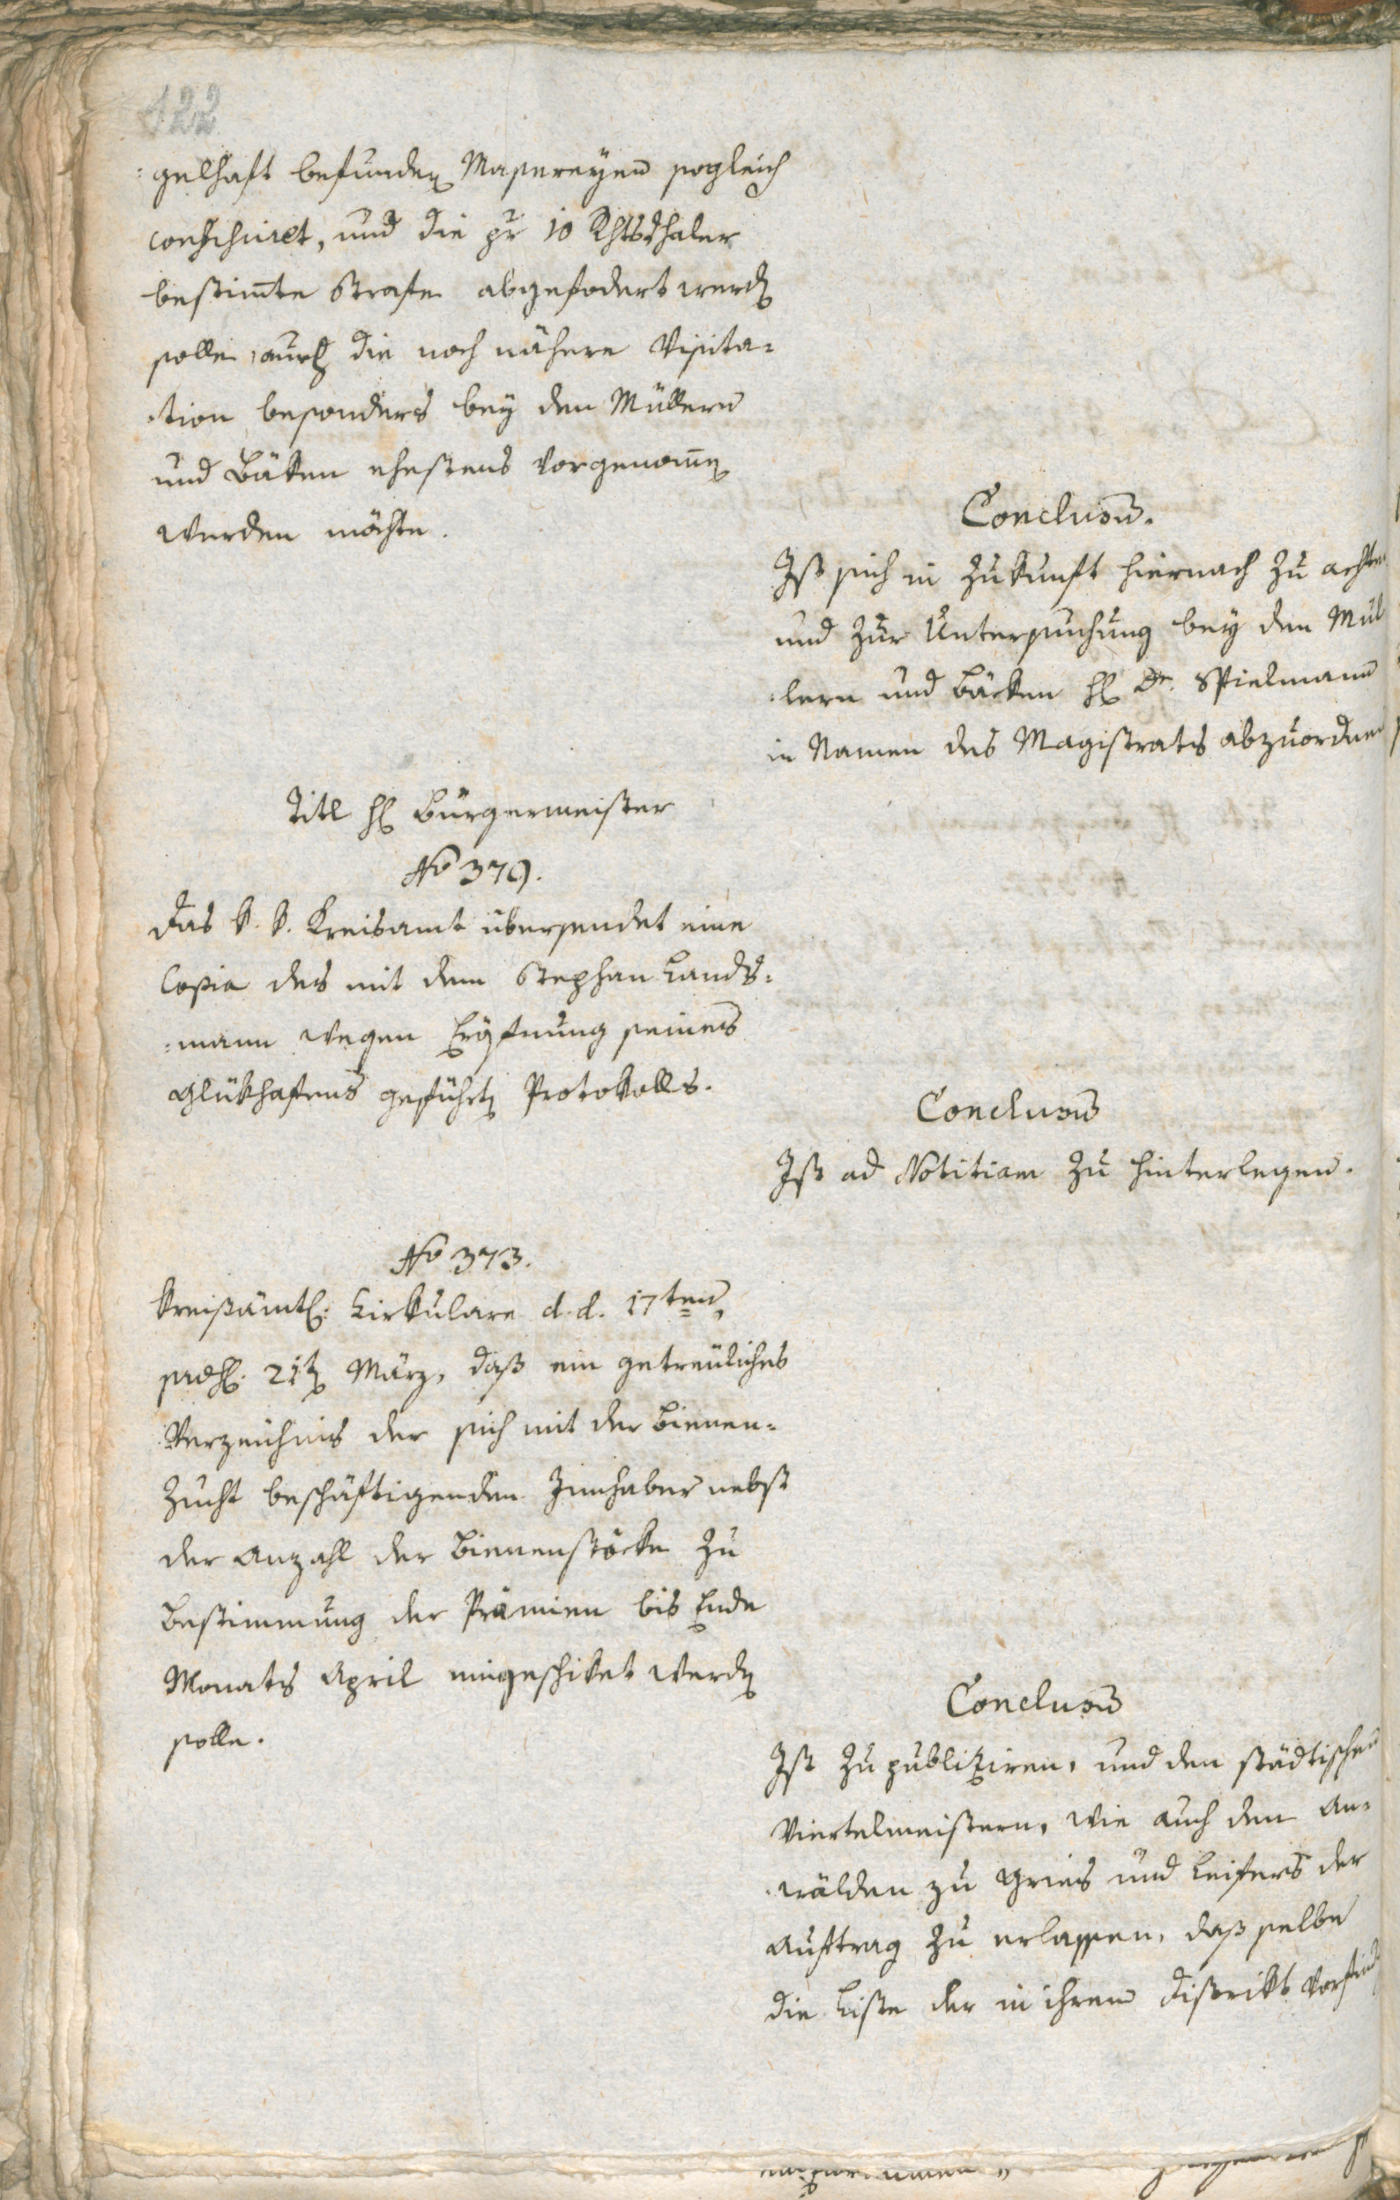 122
:gelhaft befunden Massereyen sogleich
confisciret, und die pr 10 Rhtsdhaler
bestimte Strafe abgefodert werden
solle, auch die noch nähere Visita=
:tion besonders bey den Müllern
und Bäken ehestens vorgenomen
werden möchte.
Conclusum.
Ist sich in Zukunft hiernach zu achten
und zur Untersuchung bey den Mül
:lern und Bäcken H. Dr. Spielmann
in Namen des Magistrats abzuordnen
Titl H. Bürgermeister
No 379.
Das k. k. Kreisamt übersendet eine
Copia des mit dem Stephan Lands=
=mann wegen Eröfnung seines
Glükhafens geführten Protokolls.
Conclusum
Ist ad Notitiam zu hinterlegen.
No 373.
Kreisämtl: Cirkulare d. d. 17ten,
21ten März, daß ein getreuliches
Verzeichnis der sich mit der Bienen=
zucht beschäftigenden Innhaber nebst
der Anzahl der Bienenstöcke zu
Bestimmung der Prämien bis Ende
Monats April eingeschiket werden
solle.
Conclusum
Ist zu publiziren, und den städtischen
Viertelmeistern, wie auch den An=
:wälden zu Gries und Leifers der
Auftrag zu erlassen, daß selbe
die Liste der in ihrem Distrikt vorfind